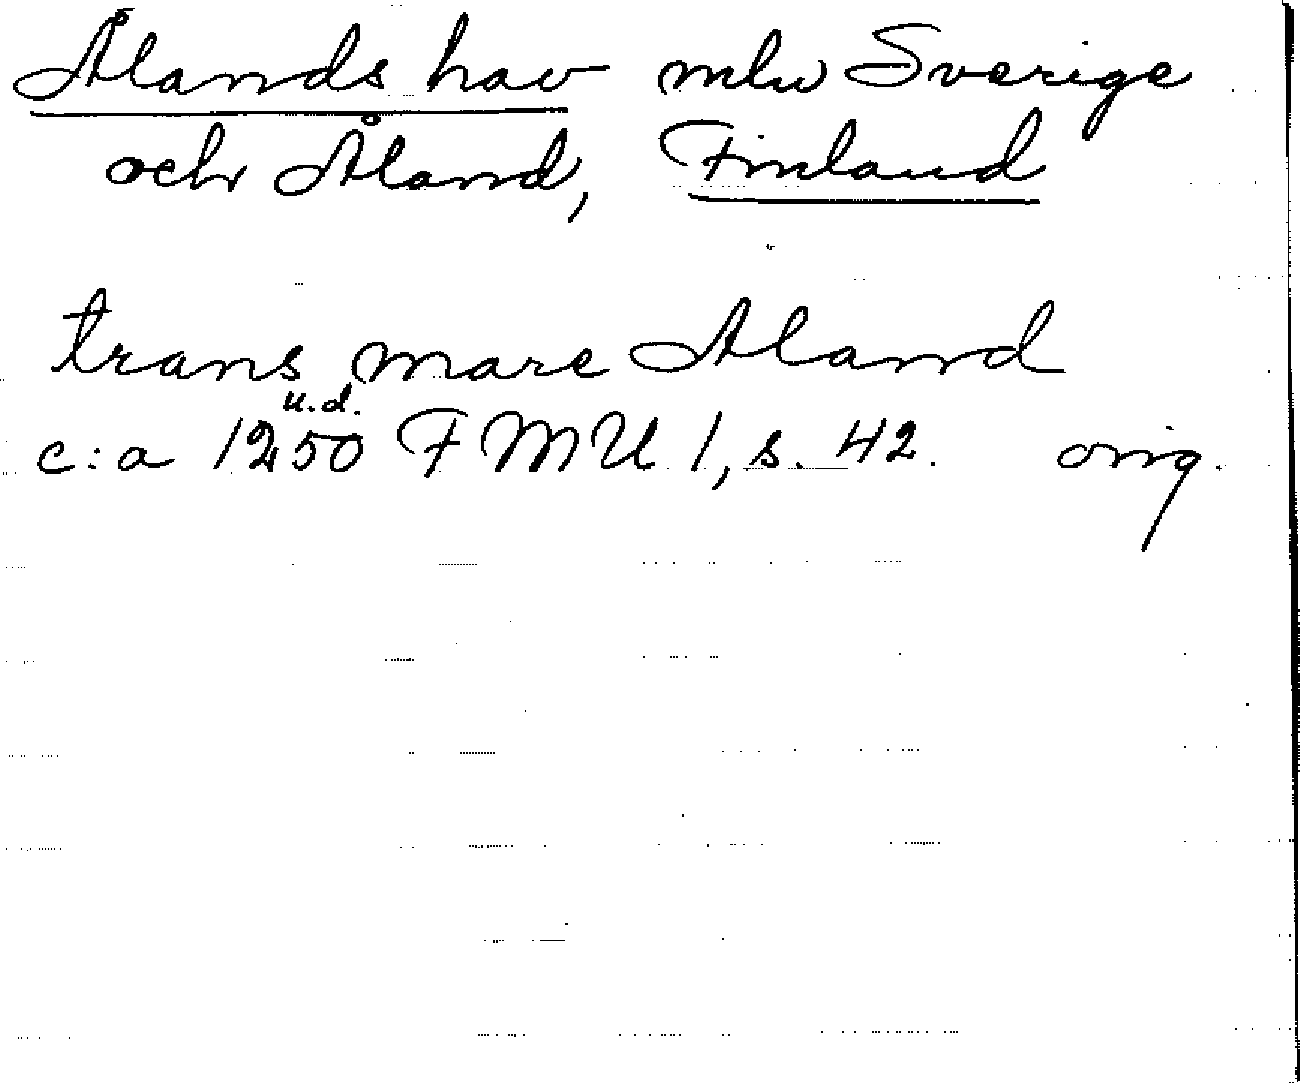 Ålands hav mlw Sverige
och Åland, Finland
trans mare Aland
u.d.
c:a 1250 FMU 1, s. 42. orig.